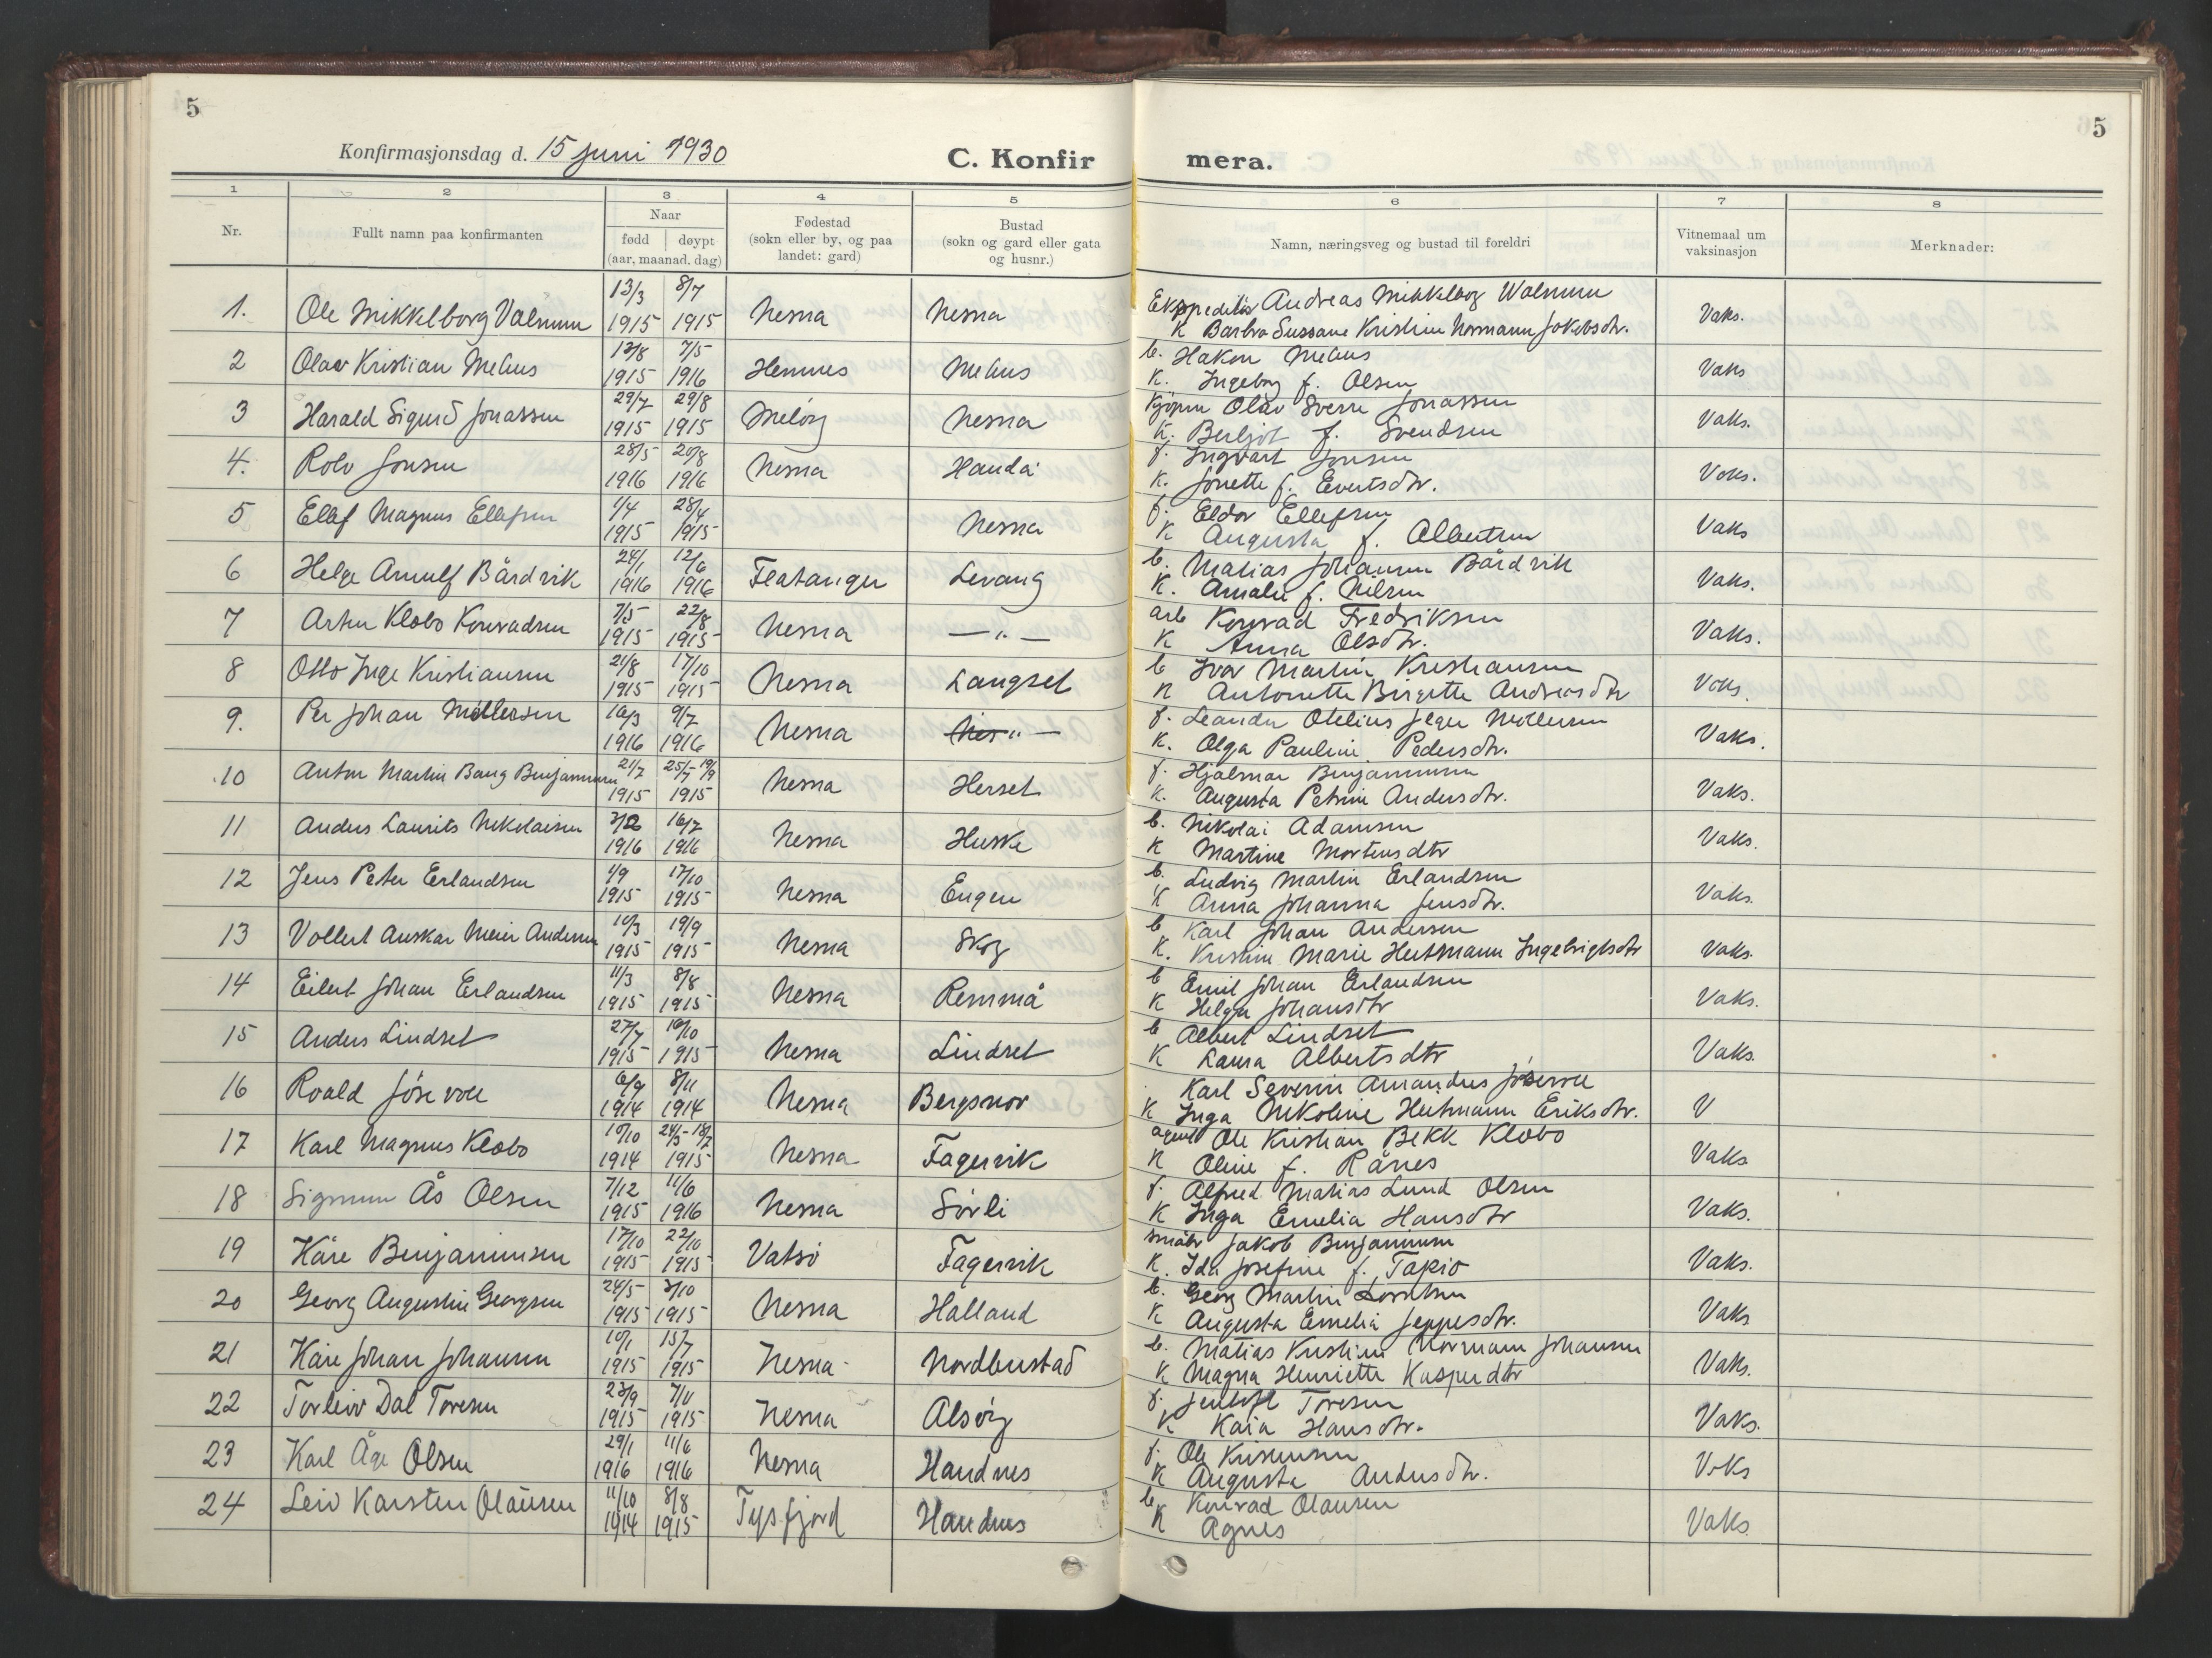 5
5
Konfirmasjonsdag d. 15 juni 1930
C. Konfir
mera.
1 2 3 4 5 6 7 8
Nr.
Fullt namn paa konfirmanten
Naar
fødd | døypt
(aar, maanad. dag)
Fødestad
(sokn eller by, og paa
landet: gard)
Bustad
(sokn og gard eller gata
og husnr.)
Namn, næringsveg og bustad til foreldri
Vitnemaal um
vaksinasjon
Merknader:
1. Ole Mikkelborg Valnum 13/3 1915 8/7 1915 Nesna Nesna
Ekspeditør Andreas Mikkelborg Walnum
K Barbra Sussane Kristine Normann Jakobsdtr. Vaks.
2 Olav Kristian Mehus 13/8 1915 7/5 1916 Hemnes Mehus
b. Hakon Mehus
K. Ingeborg f. Olsen Vaks
3 Harald Sigurd Jonassen 29/7 1915 29/8 1915 Meløy Nesna
Kjøpm Olav Sverre Jonassen
K. Berljot f. Svendsen Vaks.
4. Rolv Jensen 28/5 1916 20/8 1916 Nesna Handå
f. Ingvart Jensen
K. Jonette f. Evertsdtr. Vaks.
5 Ellef Magnus Ellefsen 1/4 1915 28/4 1915 Nesna
f. Eldor Ellefsen
K Augusta f. Albertsen Vaks
6 Helge Arnulf Bårdvik 24/1 1916 12/6 1916 Flatanger Levang
b. Matias Johansen Bårdvik
K. Amalie f. Nilsen Vaks.
7 Artur Klobo Konradsen 7/5 1915 22/8 1915 Nesna — " —
arb Konrad Fredriksen
K Anna Olsdtr. Vaks.
8 Otto Inge Kristiansen 21/8 1915 17/10 1915 Nesna Langset
b Ivar Martin Kristiansen
K Antonette Birgitte Andreasdtr Vaks.
9. Per Johan Møllersen 16/3 1916 9/7 1916 Nesna " —
f. Leander Otelius Jeger Møllersen
K. Olga Pauline Pedersdtr. Vaks.
10 Anton Martin Bang Benjaminsen 21/7 1915 25/7-19/9 1915 Nesna Herset
f. Hjalmar Benjaminsen
K. Augusta Petrine Andersdtr. Vaks.
11 Anders Laurits Nikolaisen 1916 16/7 1916 Nesna Huske
b. Nikolai Adamsen
K Martine Mortensdtr Vaks.
12 Jens Peter Erlandsen 4/9 1915 17/10 1915 Nesna Engen
b. Ludvig Martin Erlandsen
K Anna Johanna Jensdtr. Vaks.
13 Vollert Anskar Meier Andersen 10/3 1915 19/9 1915 Nesna Skog
b Karl Johan Andersen
K. Kristine Marie Heitmann Ingebrigtsdtr Vaks.
14 Eilert Johan Erlandsen 11/3 1915 8/8 1915 Nesna Remmå
b Emil Johan Erlandsen
K Helga Johansdtr Vaks.
15 Anders Lindset 27/7 1915 10/10 1915 Nesna Lindset
b Albert Lindset
K Laura Albertsdtr Vaks.
16 Roald Jósevoll 6/9 1914 8/11 1914 Nesna Bergsnov
Karl Severin Amandus Jósevoll
K Inga Nikoline Heitmann Eriksdtr. V
17 Karl Magnus Klobo 10/10 1914 24/5-18/7 1915 Nesna Fagervik
agent Ole Kristian Bekk Klobo
K Oline f. Rånes Vaks
18 Sigmun Ås Olsen 7/12 1915 11/6 1916 Nesna Sørli
f. Alfred Matias Lund Olsen
K Inga Emelia Hansdtr Vaks.
19 Kåre Benjaminsen 17/10 1915 22/10 1915 Vatsø Fagervik
småbr Jakob Benjaminsen
K. Ida Josefine f. Tapio Vaks.
20 Georg Augustin Georgsen 24/5 1915 3/10 1915 Nesna Halland
b. Georg Martin
K Augusta Emelia Jeppesdtr. Vaks
21 Kåre Johan Johansen 10/1 1915 15/7 1915 Nesna Nordbustad
b. Matias Kristian Normann Johansen
K Magna Henriette Kasperdtr Vaks.
22 Torleiv Dal Toresen 23/9 1915 7/11 1915 Nesna Alsøy
f. Jentoft Toresen
K Kaia Hansdtr. Vaks.
23 Karl Åge Olsen 29/1 1916 11/6 1916 Nesna Handnes
f. Ole Kristensen
K Augusta Andersdtr. Vaks
24 Leiv Karsten Olausen 11/10 1914 8/8 1915 Tysfjord Handnes
b Konrad Olausen
K Agnes Vaks.